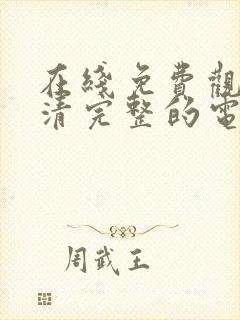 在綫免費觀
清完整的電
周武王